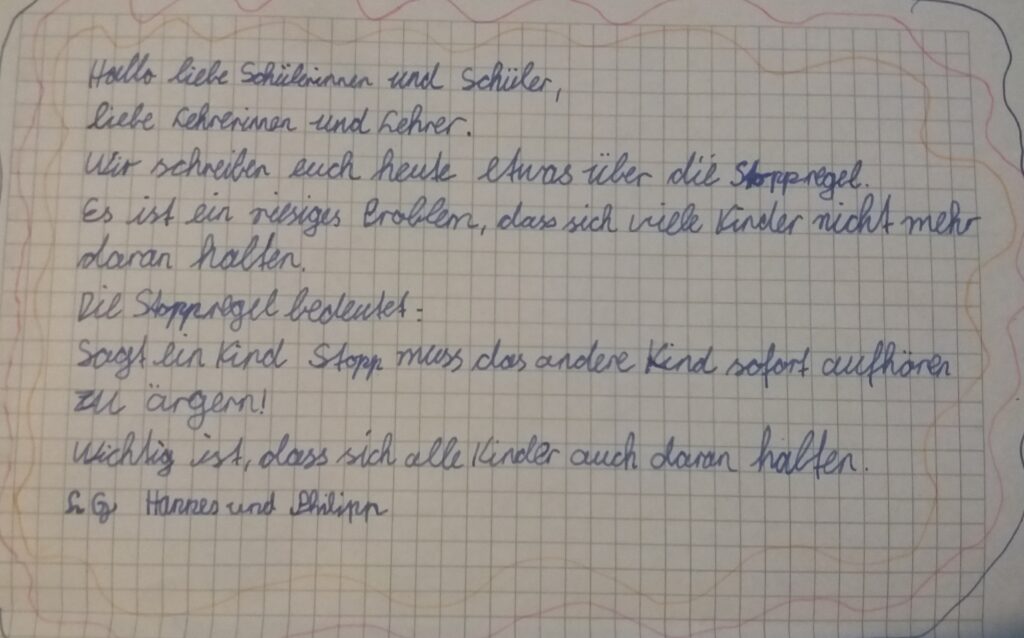 Hallo liebe Schülerinnen und Schüler,
liebe Lehrerinnen und Lehrer.
Wir schreiben euch heute etwas über die Stoppregel.
Es ist ein riesiges Problem, dass sich viele Kinder nicht mehr
daran halten.
Die Stoppregel bedeutet:
Sagt ein Kind Stopp muss das andere Kind sofort aufhören
zu ärgern!
Wichtig ist, dass sich alle Kinder auch daran halten.
LG Hannes und Philipp